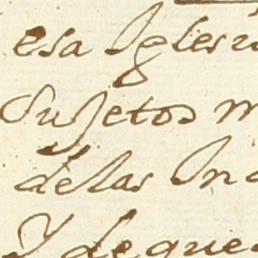 esa Iglesi
Sujetos m
delas Ind
Y de que